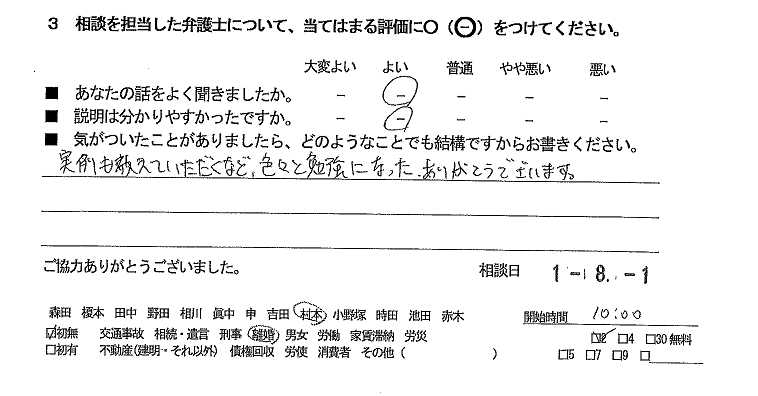 3 相談を担当した弁護士について、当てはまる評価に○（⊖）をつけてください。
大変よい よい 普通 やや悪い 悪い
■ あなたの話をよく聞きましたか。 － － － － －
■ 説明は分かりやすかったですか。 － － － － －
■ 気がついたことがありましたら、どのようなことでも結構ですからお書きください。
実例も教えていただくなど、色々と勉強になった。ありがとうございます。
ご協力ありがとうございました。 相談日 1-18.-1
森田 榎本 田中 野田 相川 眞中 申 吉田 村木 小野塚 時田 池田 赤木 開始時間 10:00
☑初無 交通事故 相続・遺言 刑事 離婚 男女 労働 家賃滞納 労災 ☑2 □4 □30無料
□初有 不動産(建明・それ以外) 債権回収 労使 消費者 その他 ( ) □5 □7 □9 □